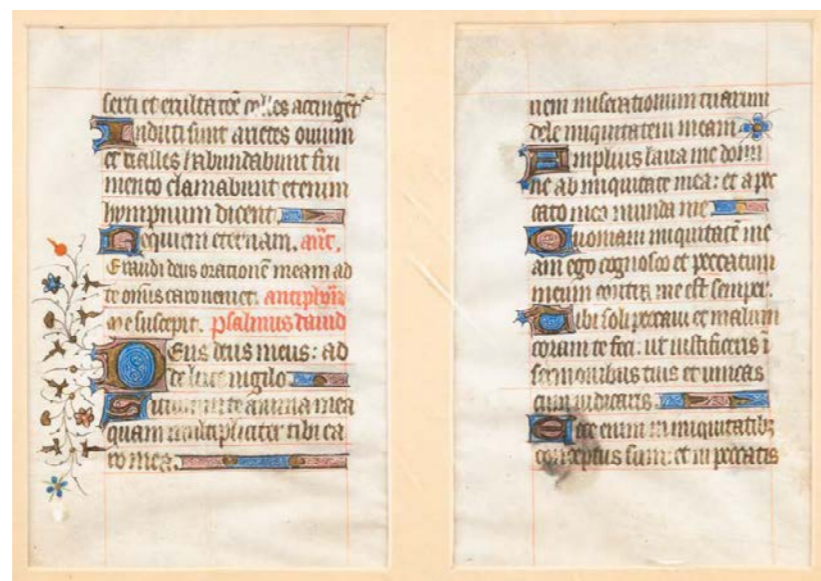 serti et exultatōe colles accingēt
Induti sunt arietes ovium
et valles habundabunt fru
mento clamabunt etenim
hympnum dicent
Requiem eternam. añt.
Exaudi deus orationē meam ad
te omīs caro veniet. antiphōa
Me suscepit. psalmus david
Deus deus meus: ad
te luce vigilo
Sitivit in te anima mea
quam multipliciter tibi ca
ro mea.
nem miserationum tuarum
dele iniquitatem meam
Amplius lava me domi
ne ab iniquitate mea: et a pec
cato meo munda me
Quoniam iniquitatē me
am ego cognosco et peccatum
meum contra me est semper.
Tibi soli peccavi et malum
coram te feci. ut iustificeris ī
sermonibus tuis et vincas
cum iudicaris
Ecce enim in iniquitatibꝫ
conceptus sum: et in peccatis